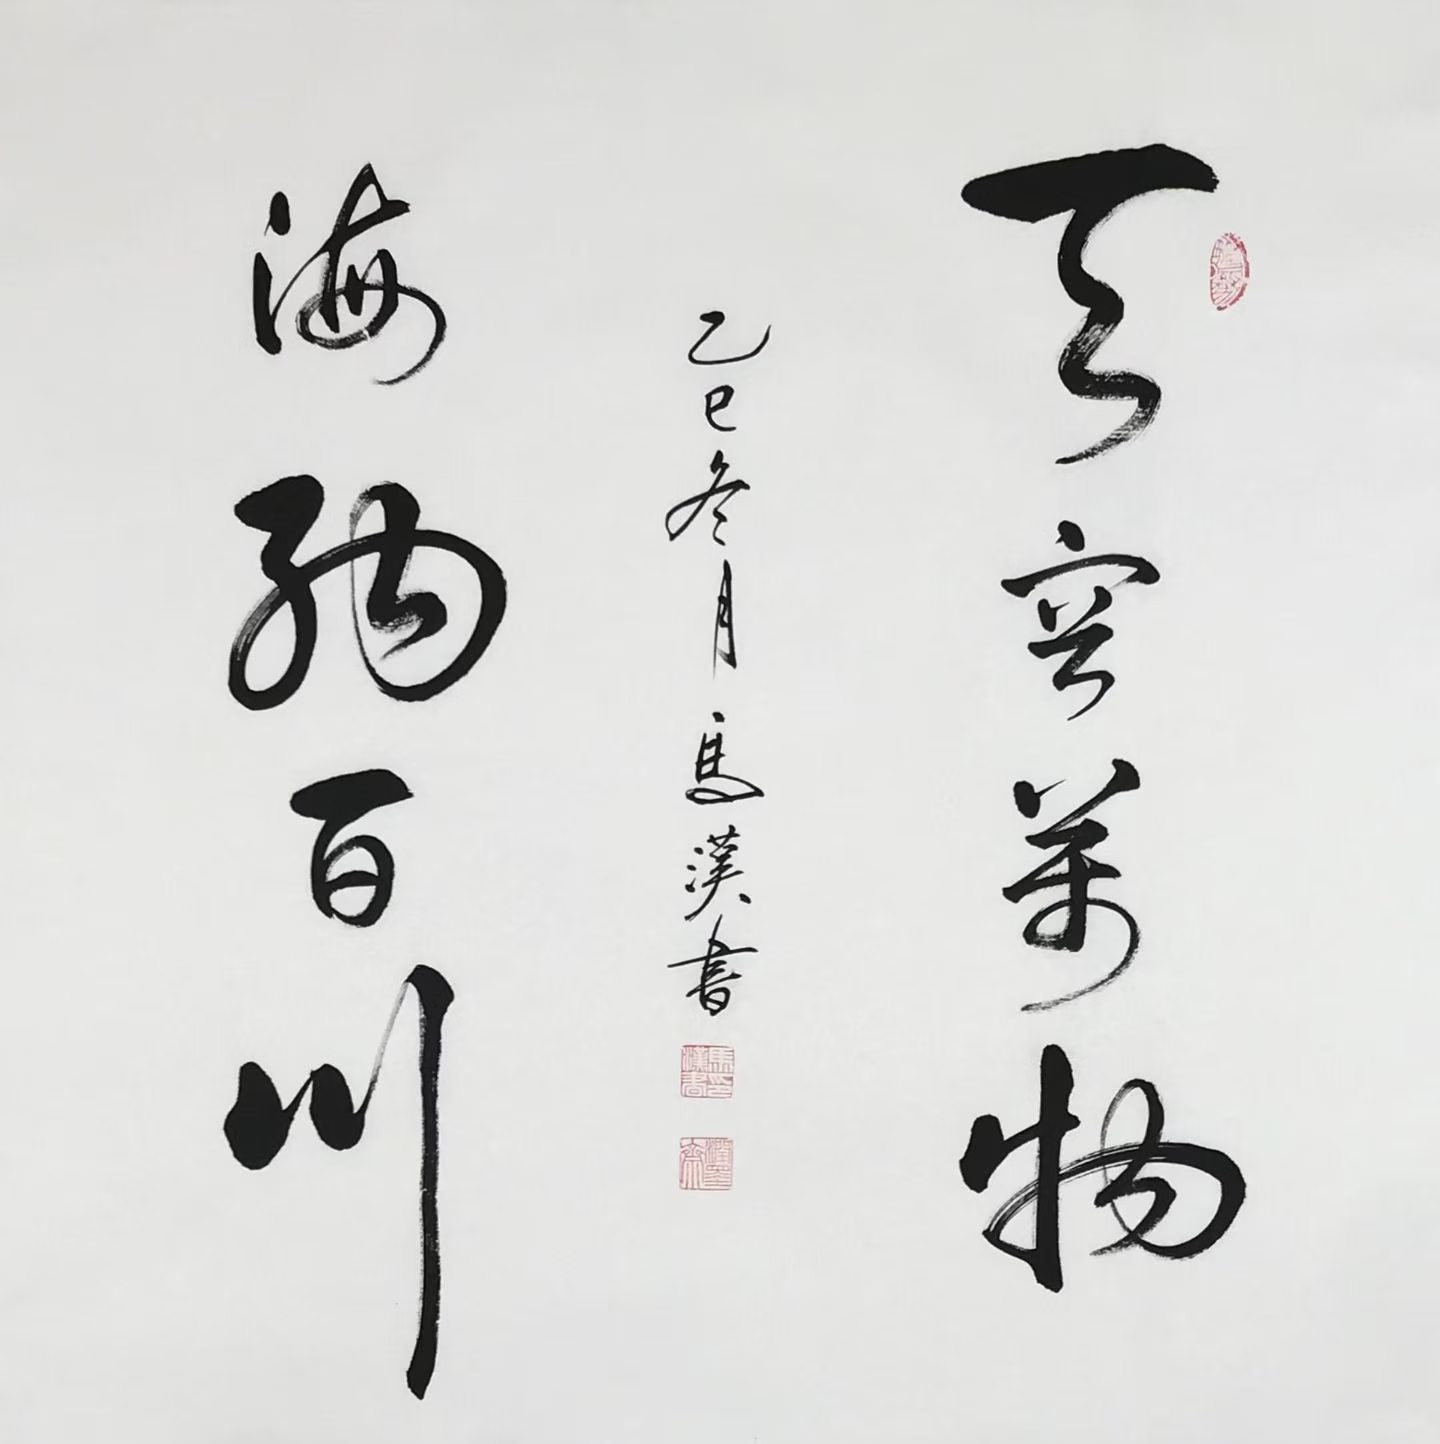 天容萬物
海納百川
乙巳冬月馬漢書